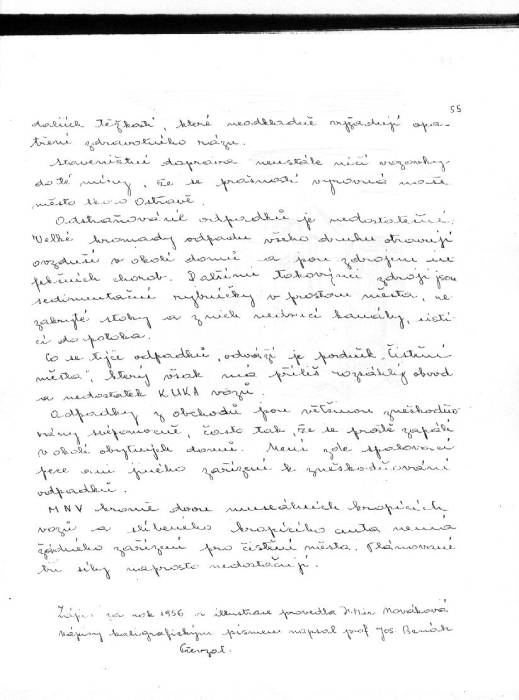 55
dalších těžkostí, které neodkladně vyžadují opa-
tření zdravotního rázu.
Staveništní doprava neustále ničí vozovky
do té míry, že se prašností vyrovná naše
město skoro Ostravě.
Odstraňování odpadků je nedostatečné.
Velké hromady odpadu všeho druhu otravují
ovzduší v okolí domů a jsou zdrojem in-
fekčních chorob. Dalšími takovými zdroji jsou
sedimentační rybníčky v prostoru města, ne
zakryté stoky a z nich nedrící kanálky, ústí
cí do potoka.
Co se týče odpadků, odváží je podnik "Čistění
města", který však má příliš rozsáhlý obvod
a nedostatek KUKA vozů.
Odpadky z obchodů jsou většinou zneškodňo
vány svépomocně, často tak, že se prostě zapálí
v okolí obytných domů. Není zde spalovací
pece ani jiného zařízení k zneškodňování
odpadků.
MNV kromě dvou museálních kropících
vozů a slíbeného kropícího auta nemá
žádného zařízení pro čistění města. Plánované
tři síly naprosto nedostačují.
Zápis za rok 1956 a illustrace provedla Nováková
zápisy kaligrafickým písmem napsal prof Jos. Benák
Převzal: